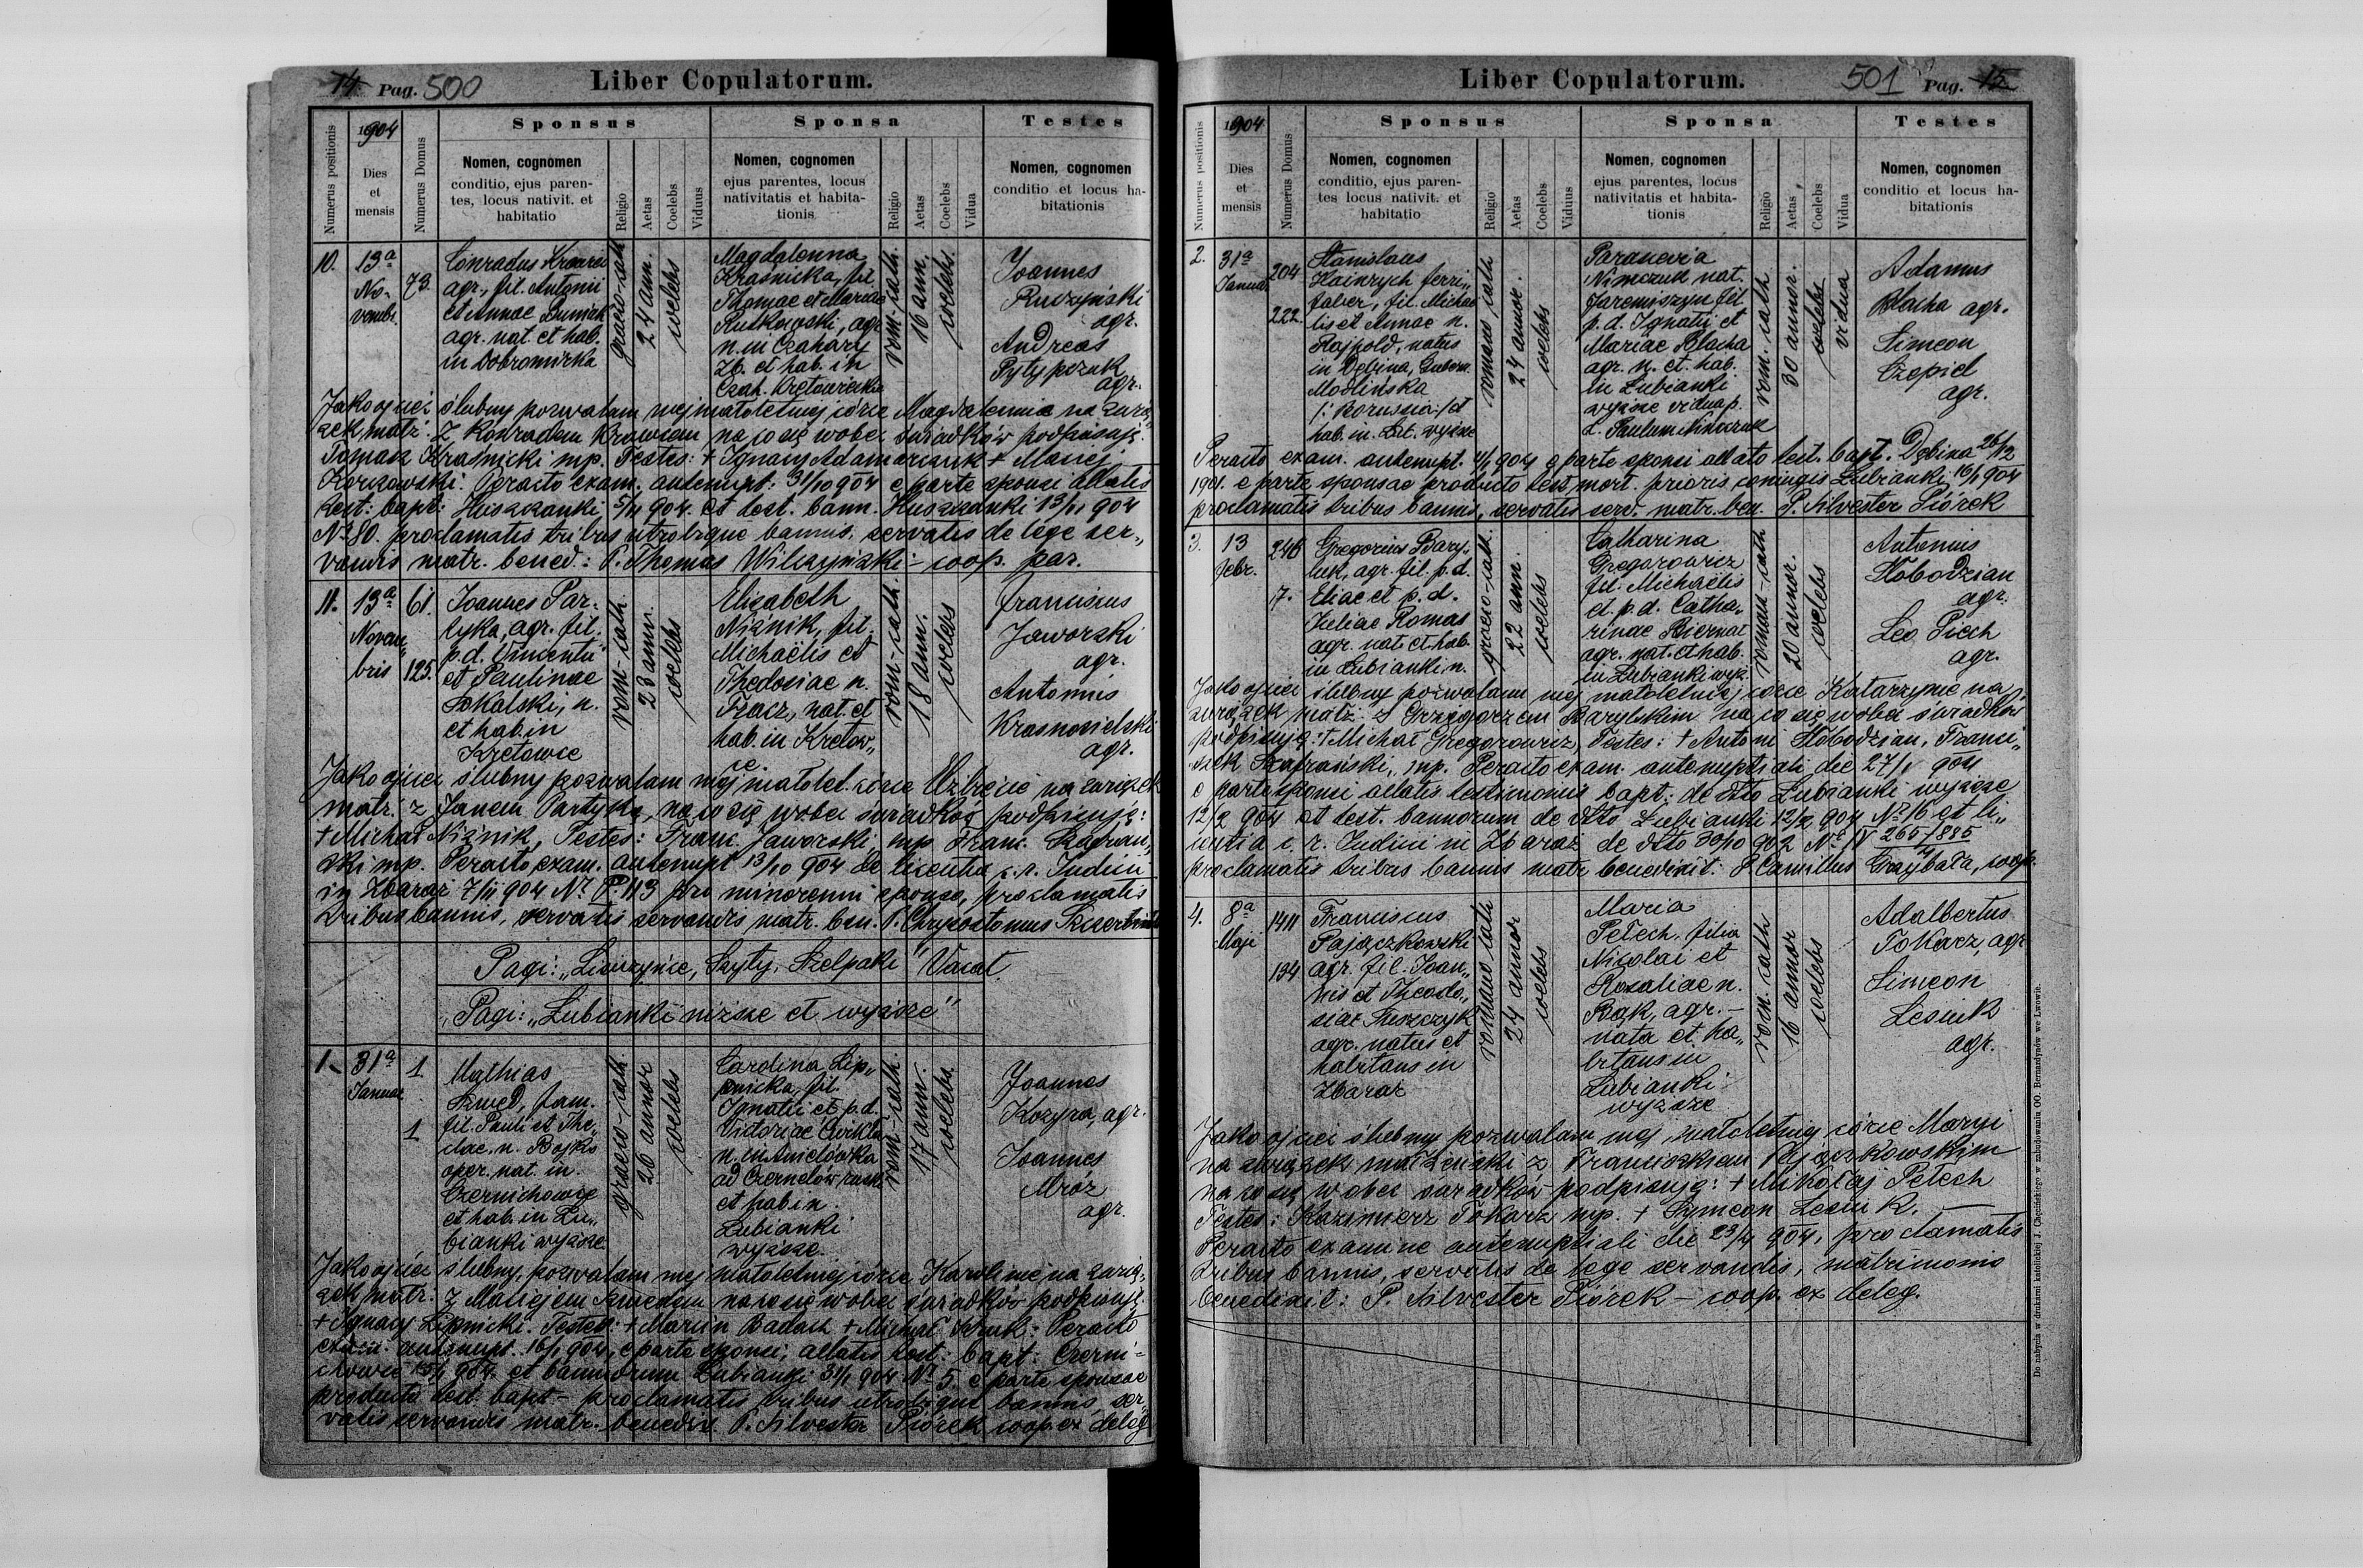 14 Pag. 500
Liber Copulatorum.
Numerus positionis
1904
Dies
et
mensis
Numerus Domus
Sponsus
Nomen, cognomen
conditio, ejus paren-
tes, locus nativit. et
habitatio
Religio
Aetas
Coelebs
Viduus
Sponsa
Nomen, cognomen
ejus parentes, locus
nativitatis et habita-
tionis
Religio
Aetas
Coelebs
Vidua
Testes
Nomen, cognomen
conditio et locus ha-
bitationis
10.
13a
No-
vembr.
73.
Conradus
agr., fil. Antonii
et Annae
agr. nat. et hab.
in Dobromirka
graeco-cath
24 ann.
coelebs
Magdalenna
Kraśnicka, fil.
Thomae et Mariae
Rutkowski, agr.
n. in Czahary
Zb. et hab. in
Czah. Krętowieckie
rom.-cath.
16 ann.
coelebs.
Joannes
Ruczyński
agr.
Andreas
Pytypczuk
agr.
Jako ojciec ślubny pozwalam mej małoletniej córce Magdalennie na zwią„
zek matż. z Konradem Krawcem na co się wobec świadków podpisuję.
Tomasz Kraśnicki mp. Testes: + Ignacy Adamarczuk + Maciej
Korczowski. Peracto exam. antenupt: 31/10 904 e parte sponsi allatis
test: bapt: Huszczanki 5/11 904. et test. bann. Huszczanki 13/11 904
No 80. proclamatis tribus utrobique bannis, servatis de lege ser„
vandis matr. bened: P. Thomas Wilczyński - coop. par.
11.
13a
Novem„
bris
61.
125.
Joannes Par-
tyka, agr. fil.
p.d. Vincentii
et Paulinae
Sokalski, n.
et hab. in
Krętowce
rom-cath.
23 ann.
coelebs
Elisabeth
Niżnik, fil.
Michaëlis et
Thedosiae n.
Tkacz, nat. et
hab. in Krętow„
ce.
rom-cath.
18 ann.
coelebs
Franciscus
Jaworski
agr.
Antonius
Krasnosielski
agr.
Jako ojciec ślubny pozwalam mej małolet. córce Elżbiecie na związek
matż. z Janem Partyką, na co się wobec świadków podpisuję:
+ Michał Niżnik, Testes: Franc. Jaworski, mp. Franc.
ski mp. Peracto exam. antenupt 13/10 904 de licentia c.r. Judicii
in Zbaraż 7/11 904 No P. 113 pro minorenni sponsa, proclamatis
tribus bannis, servatis servandis matr. ben. P. Chrysostomus
Pagi: „Lisieczyńce, Szyty, Szelpaki" Vacat
„Pagi: „Łubianki niższe et wyższe"
1.
31a
Januar
1
1
Mathias
Szwed, fam.
fil. Pauli et The„
clae, n. Bojko
oper. nat. in
Czernichowce
et hab. in Łu„
bianki wyższe
graeco-cath
26 annor
coelebs
Carolina Lip„
nicka, fil.
Ignatii et p.d.
Victoriae
n. in Anielówka
ad Czernelów ruski
et hab. in
Łubianki
wyższe.
rom-cath.
17 ann.
coelebs.
Joannes
Kozyra, agr.
Joannes
Mroz
agr.
Jako ojciec ślubny, pozwalam mej małoletniej córce Karolinie na zwią„
zek matr. z Maciejem Szwedem na co się wobec świadków podpisuję.
+ Ignacy Lipnicki. Testes: + Marcin Badach + Michał Peracto
exam. antenupt. 16/1 904, e parte sponsi; allatis test: bapt. Czerni-
chowce 904. et bannorum Łubianki 31/1 904 No 5. e parte sponsae
producto test. bapt. - proclamatis tribus utrobique bannis, ser„
vatis servandis matr. benedix. P. Silvester Piórek coop. ex deleg
Liber Copulatorum.
501 Pag. 15
Numerus positionis
1904
Dies
et
mensis
Numerus Domus
Sponsus
Nomen, cognomen
conditio, ejus paren-
tes locus nativit. et
habitatio
Religio
Aetas
Coelebs
Viduus
Sponsa
Nomen, cognomen
ejus parentes, locus
nativitatis et habita-
tionis
Religio
Aetas
Coelebs
Vidua
Testes
Nomen, cognomen
conditio et locus ha-
bitationis
2.
31a
Januar
204
222.
Stanislaus
Hainrych ferri„
faber, fil. Michae
lis et Annae n.
Rajpold, natus
in Dębina, Gubern.
Modlinska
/: Borussia:/ et
hab. in Łub. wyższe
romano cath
24 annor.
coelebs
Paranevia
Nimczuk nat.
Jaremiszyn fil.
p.d. Ignatii et
Mariae Blacha
agr. n. et. hab.
in Łubianki
wyższe vidua p.
d. Paulum Nimczuk
rom. cath
30 annor.
coelebs
vidua
Adamus
Blacha agr.
Simeon
Czepiel
agr.
Peracto exam. antenupt. 4/1 904 e parte sponsi allato test. bapt. Dębina 26/12
1901. e parte sponsae producto test mort. prioris coniugis Łubianki 16/1 904
proclamatis tribus bannis, servatis serv. matr. ben. P. Silvester Piórek
3.
13
febr.
246
7.
Gregorius Bary„
luk, agr. fil. p.d.
Eliae et p.d.
Juliae Romas
agr. nat. et hab.
in Łubianki n.
graeco-cath.
22 ann.
coelebs
Catharina
Gregorowicz
fil. Michaëlis
et p.d. Catha„
rinae Biernat
agr. nat. et hab.
in Łubianki wyż.
romano-cath
20 annor.
coelebs
Antonius
Słobodzian
agr.
Leo Piech
agr.
Jako ojciec ślubny pozwalam mej małoletniej córce Katarzynie na
związek matż. z Grzegorzem Barylukiem na co się wobec świadków
podpisuję: + Michał Gregorowicz, Testes: + Antoni Słobodzian, Franci„
szek Szafrański, mp. Peracto exam. antenuptiali die 27/1 904
e parte sponsi allatis testimoniis bapt: de dto Łubianki wyższe
12/2 904 et test. bannorum de dto Łubianki 12/2 904 No 16 et li„
centia c. r. Judicii in Zbaraż de dto 30/10 902 No IV 265/885
proclamatis tribus bannis matr benedixit: P Camillus Grzybała, coop.
4.
8a
Maji
1411
134
Franciscus
Pajączkowski
agr. fil. Joan„
nis et Theodo„
siae Tuszczyk
agr. natus et
habitans in
Zbaraż
romano cath
24 annor
coelebs
Maria
Pełech, filia
Nicolai et
Rozaliae n.
Bąk, agr. -
nata et ha„
bitans in
Łubianki
wyższe
rom. cath
16 annor
coelebs
Adalbertus
Tokarz, agr
Simeon
Lesiuk
agr.
Jako ojciec ślubny pozwalam mej małoletniej córce Maryi
na związek małżeński z Franciszkiem Pajączkowskim
na co się wobec świadków podpisuję: + Mikołaj Pełech
Testes: Kazimierz Tokarz mp. + Symeon Lesiuk. —
Peracto examine antenuptiali die 23/4 904, proclamatis
tribus bannis, servatis de lege servandis, matrimonio
benedixit: P. Silvester Piórek - coop. ex deleg.
Do nabycia w drukarni katolickiej J. Chęcińskiego w zabudowaniu OO. Bernardynów we Lwowie.